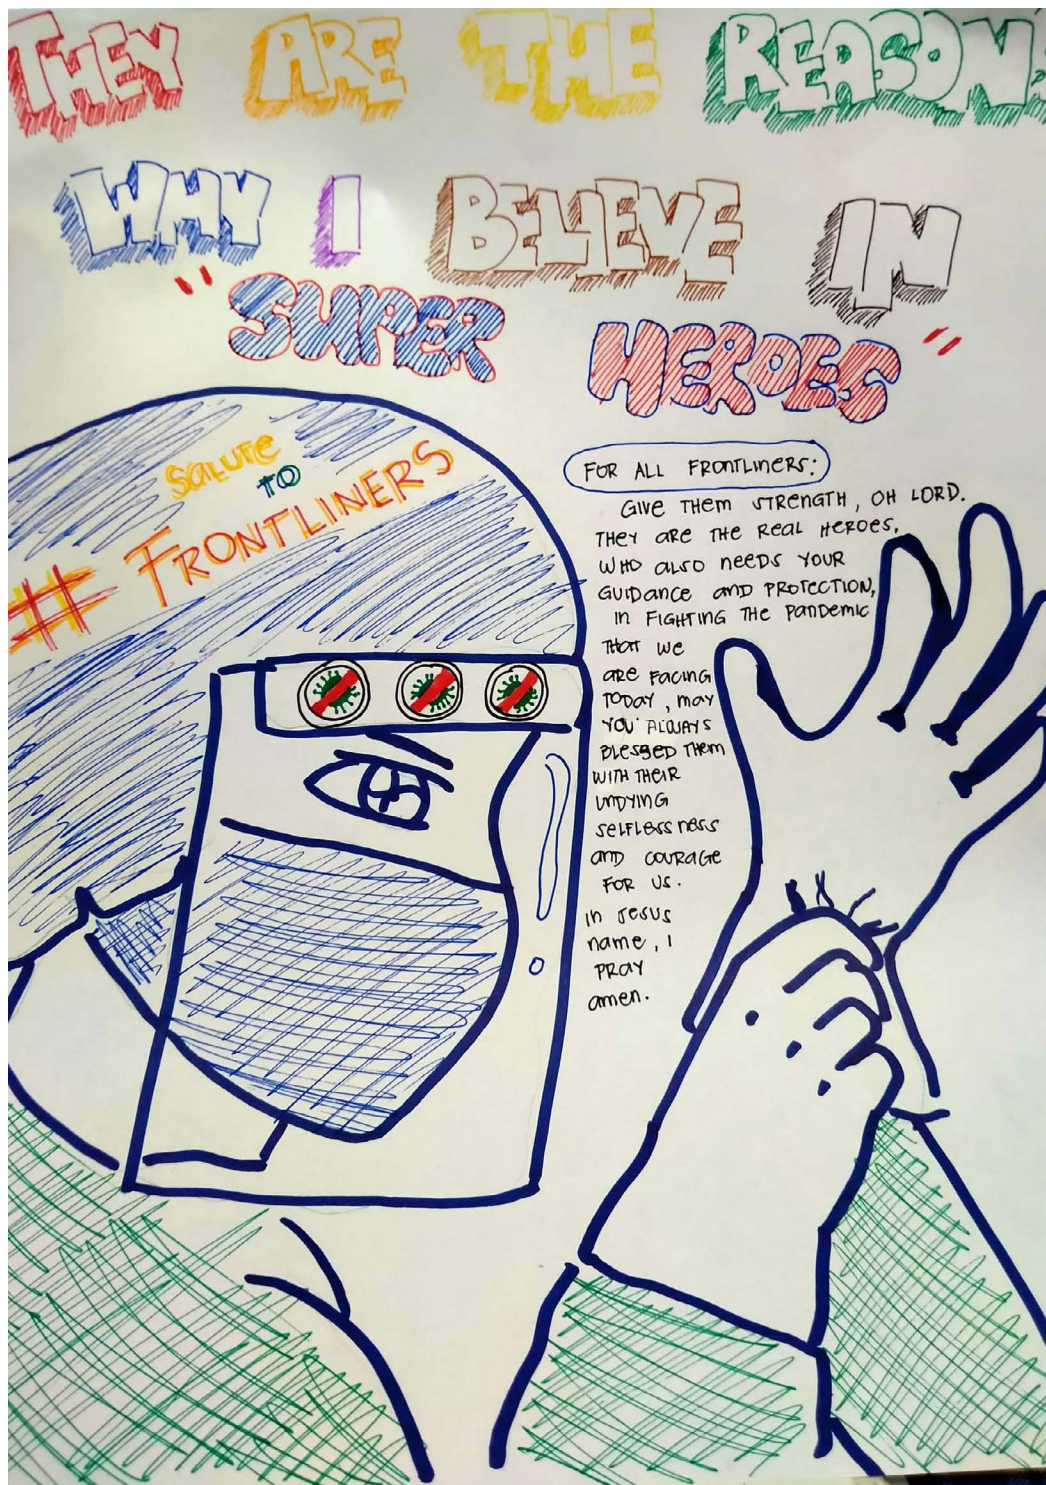 THEY ARE THE REASONS
WHY I BELIEVE IN
"SUPER
HEROES"
SALUTE
TO
# FRONTLINERS
FOR ALL FRONTLINERS:
GIVE THEM STRENGTH, OH LORD.
THEY ARE THE REAL HEROES,
WHO ALSO NEEDS YOUR
GUIDANCE AND PROTECTION,
IN FIGHTING THE PANDEMIC
THAT WE
ARE FACING
TODAY, MAY
YOU ALWAYS
BLESSED THEM
WITH THEIR
UNDYING
SELFLESSNESS
AND COURAGE
FOR US.
IN JESUS
NAME, I
PRAY
AMEN.